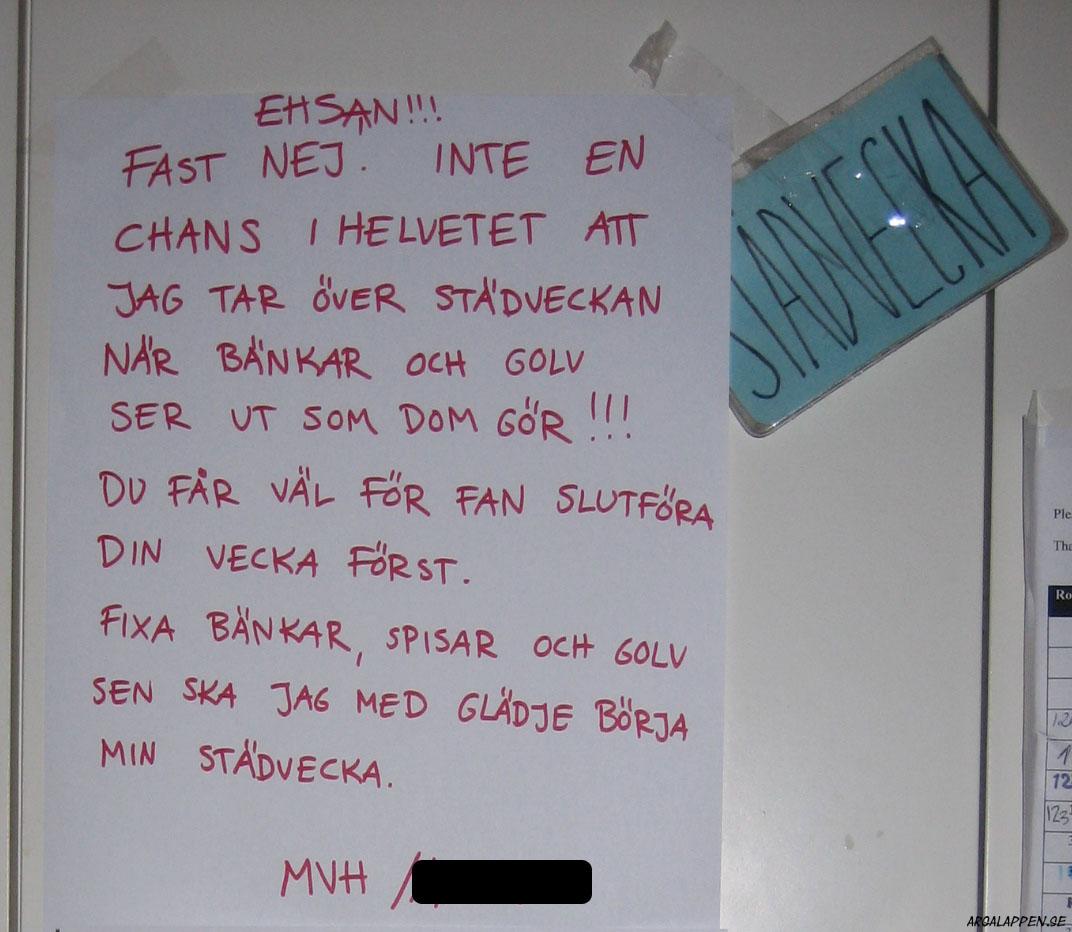 EHSAN!!!
FAST NEJ. INTE EN
CHANS I HELVETET ATT
JAG TAR ÖVER STÄDVECKAN
NÄR BÄNKAR OCH GOLV
SER UT SOM DOM GÖR!!!
DU FÅR VÄL FÖR FAN SLUTFÖRA
DIN VECKA FÖRST.
FIXA BÄNKAR, SPISAR OCH GOLV
SEN SKA JAG MED GLÄDJE BÖRJA
MIN STÄDVECKA.
MVH /
STÄDVECKA
Ple
Tha
Ro
12
ARGALAPPEN.SE